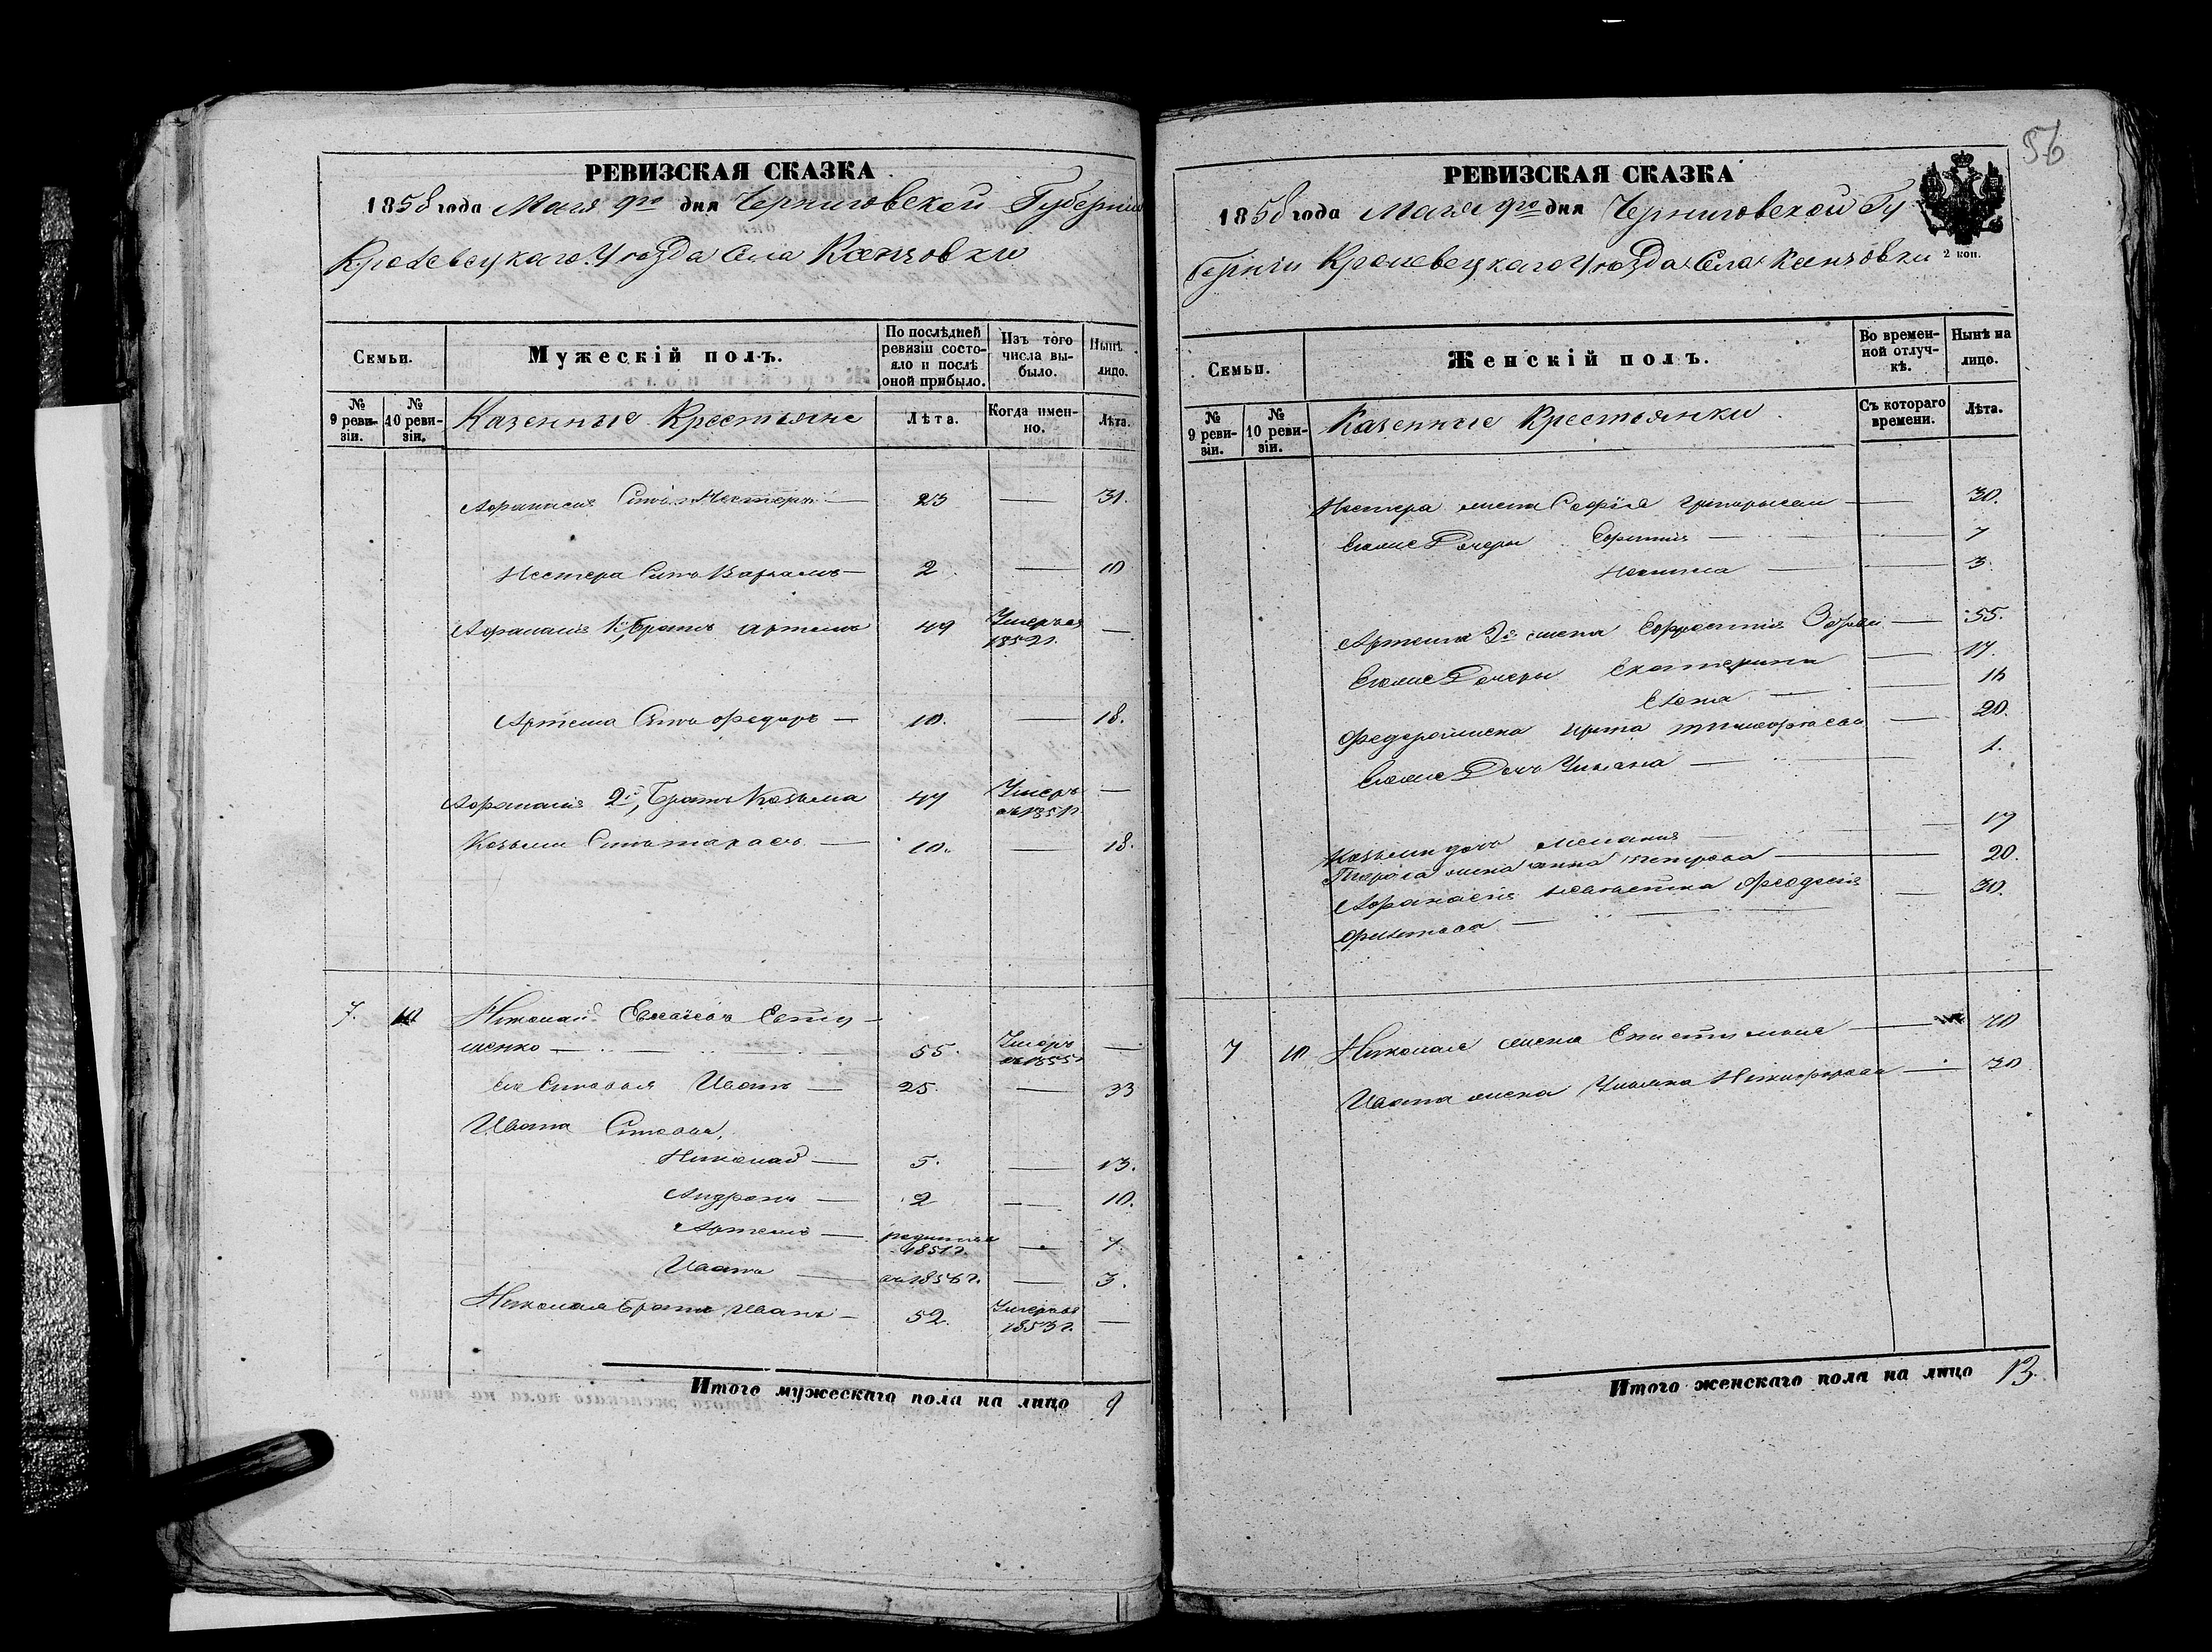 РЕВИЗСКАЯ СКАЗКА
1858 года Маія 9го дня Черниговской Губерніи
Кролевецкаго Уѣзда Села
Семьи.
Мужескій полъ.
По послѣдней ревизіи состояло и послѣ оной прибыло.
Изъ того числа выбыло.
Нынѣ лицо.
№ 9 ревизіи.
№ 10 ревизіи.
Казенные Крестьяне
Лѣта.
Когда именно.
Лѣта.
Афанасія Сынъ Нестеръ — 23 — 31.
Нестера Сынъ Варламъ — 2 — 10
Афанасія 1й Братъ Артемъ 49 Умеръ въ 1852г. —
Артема Сынъ Федоръ — 10. — 18.
Афанасія 2й Братъ Козьма 47 Умеръ въ 1851г. —
Козьмы Сынъ Тарасъ — 10. — 18.
7. 10 Николай
55. Умеръ въ 1855г. —
Его Сыновья Иванъ — 25. — 33
Ивана Сыновья,
Николай — 5. — 13.
Андрей — 2 — 10.
Артемъ — родился 1851г. — 7.
Иванъ — въ 1856г. — 3.
Николая Братъ Иванъ — 52. Умеръ въ 1853г. —
Итого мужескаго пола на лицо 9
56
РЕВИЗСКАЯ СКАЗКА
1858 года Маія 9го дня Черниговской Гу
берніи Кролевецкаго Уѣзда Села
2 коп.
Семьи.
Женскій полъ.
Во временной отлучкѣ.
Нынѣ на лицо.
№ 9 ревизіи.
№ 10 ревизіи.
Казенные Крестьянки.
Съ котораго времени.
Лѣта.
Нестера жена Софія — 30.
Ея же Дочери — 7
— 3.
Артема 2я жена — 55.
Ея же Дочери Екатерина — 17.
Елена —
Федора жена — 20.
Ея же Дочь Ульяна — 1.
Козьмы дочь Меланія — 19
Тараса жена Анна Петрова — 20.
Афанасія Феодосія — 30.
7 10 Николая жена — 70
Ивана жена Ульяна Никифорова — 30
Итого женскаго пола на лицо 13.